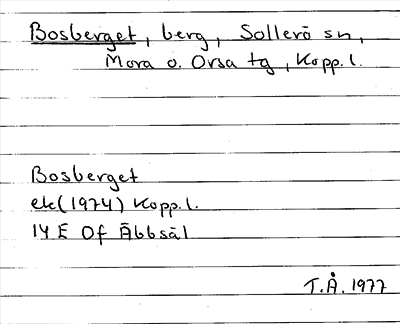 Bosberget, berg, Sollerö sn,
Mora o. Orsa tg, Kopp.l.
Bosberget
ek(1974) Kopp.l.
14 E 0f Äbbsäl
T.Å. 1977